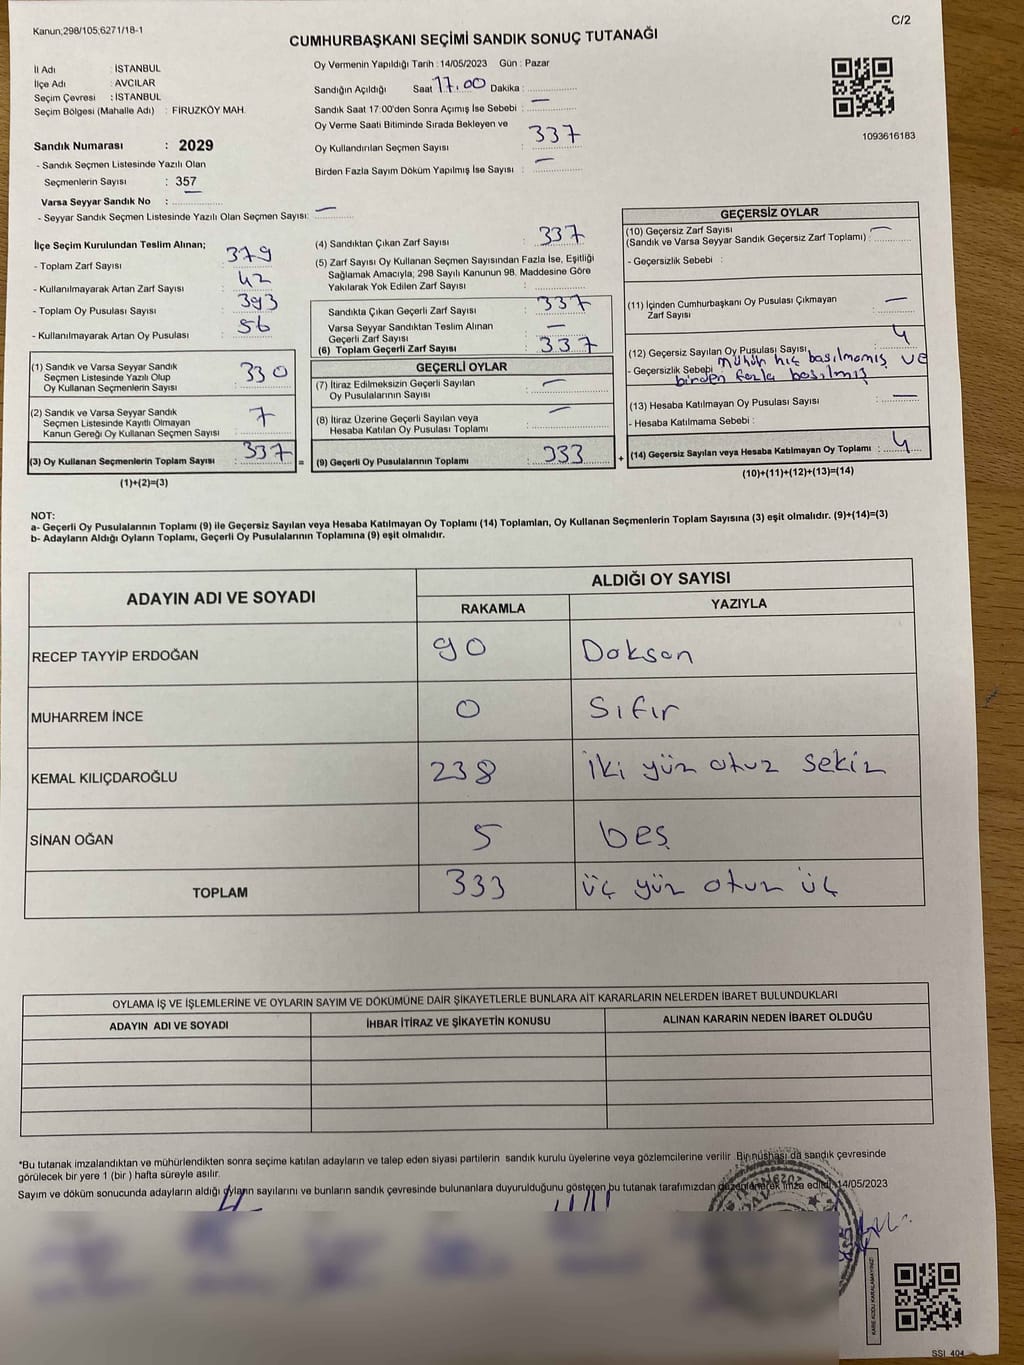 Kanun;298/105,6271/18-1
C/2
CUMHURBAŞKANI SEÇİMİ SANDIK SONUÇ TUTANAĞI
İl Adı : İSTANBUL
İlçe Adı : AVCILAR
Seçim Çevresi : İSTANBUL
Seçim Bölgesi (Mahalle Adı) : FİRUZKÖY MAH.
Oy Vermenin Yapıldığı Tarih : 14/05/2023 Gün : Pazar
Sandığın Açıldığı Saat 17.00 Dakika :
Sandık Saat 17:00'den Sonra Açımış İse Sebebi : —
Oy Verme Saati Bitiminde Sırada Bekleyen ve
Oy Kullandırılan Seçmen Sayısı : 337
Birden Fazla Sayım Döküm Yapılmış İse Sayısı : —
1093616183
Sandık Numarası : 2029
- Sandık Seçmen Listesinde Yazılı Olan
Seçmenlerin Sayısı : 357
Varsa Seyyar Sandık No : —
- Seyyar Sandık Seçmen Listesinde Yazılı Olan Seçmen Sayısı: —
İlçe Seçim Kurulundan Teslim Alınan;
- Toplam Zarf Sayısı : 379
- Kullanılmayarak Artan Zarf Sayısı : 42
- Toplam Oy Pusulası Sayısı : 393
- Kullanılmayarak Artan Oy Pusulası : 56
(1) Sandık ve Varsa Seyyar Sandık
Seçmen Listesinde Yazılı Olup
Oy Kullanan Seçmenlerin Sayısı : 330
(2) Sandık ve Varsa Seyyar Sandık
Seçmen Listesinde Kayıtlı Olmayan
Kanun Gereği Oy Kullanan Seçmen Sayısı : 7
(3) Oy Kullanan Seçmenlerin Toplam Sayısı : 337
(1)+(2)=(3)
(4) Sandıktan Çıkan Zarf Sayısı : 337
(5) Zarf Sayısı Oy Kullanan Seçmen Sayısından Fazla İse, Eşitliği
Sağlamak Amacıyla; 298 Sayılı Kanunun 98. Maddesine Göre
Yakılarak Yok Edilen Zarf Sayısı :
Sandıkta Çıkan Geçerli Zarf Sayısı : 337
Varsa Seyyar Sandıktan Teslim Alınan
Geçerli Zarf Sayısı : —
(6) Toplam Geçerli Zarf Sayısı : 337
GEÇERLİ OYLAR
(7) İtiraz Edilmeksizin Geçerli Sayılan
Oy Pusulalarının Sayısı : —
(8) İtiraz Üzerine Geçerli Sayılan veya
Hesaba Katılan Oy Pusulası Toplamı : —
= (9) Geçerli Oy Pusulalarının Toplamı : 333
GEÇERSİZ OYLAR
(10) Geçersiz Zarf Sayısı : —
(Sandık ve Varsa Seyyar Sandık Geçersiz Zarf Toplamı)
- Geçersizlik Sebebi :
(11) İçinden Cumhurbaşkanı Oy Pusulası Çıkmayan
Zarf Sayısı : —
(12) Geçersiz Sayılan Oy Pusulası Sayısı : 4
- Geçersizlik Sebebi : mühür hiç basılmamış ve
birden fazla basılmış
(13) Hesaba Katılmayan Oy Pusulası Sayısı : —
- Hesaba Katılmama Sebebi :
+ (14) Geçersiz Sayılan veya Hesaba Katılmayan Oy Toplamı : 4
(10)+(11)+(12)+(13)=(14)
NOT:
a- Geçerli Oy Pusulalarının Toplamı (9) ile Geçersiz Sayılan veya Hesaba Katılmayan Oy Toplamı (14) Toplamları, Oy Kullanan Seçmenlerin Toplam Sayısına (3) eşit olmalıdır. (9)+(14)=(3)
b- Adayların Aldığı Oyların Toplamı, Geçerli Oy Pusulalarının Toplamına (9) eşit olmalıdır.
ADAYIN ADI VE SOYADI
ALDIĞI OY SAYISI
RAKAMLA YAZIYLA
RECEP TAYYİP ERDOĞAN 90 Doksan
MUHARREM İNCE 0 Sıfır
KEMAL KILIÇDAROĞLU 238 İki yüz otuz sekiz
SİNAN OĞAN 5 beş
TOPLAM 333 üç yüz otuz üç
OYLAMA İŞ VE İŞLEMLERİNE VE OYLARIN SAYIM VE DÖKÜMÜNE DAİR ŞİKAYETLERLE BUNLARA AİT KARARLARIN NELERDEN İBARET BULUNDUKLARI
ADAYIN ADI VE SOYADI İHBAR İTİRAZ VE ŞİKAYETİN KONUSU ALINAN KARARIN NEDEN İBARET OLDUĞU
*Bu tutanak imzalandıktan ve mühürlendikten sonra seçime katılan adayların ve talep eden siyasi partilerin sandık kurulu üyelerine veya gözlemcilerine verilir. Bir nüshası da sandık çevresinde
görülecek bir yere 1 (bir ) hafta süreyle asılır.
Sayım ve döküm sonucunda adayların aldığı oyların sayılarını ve bunların sandık çevresinde bulunanlara duyurulduğunu gösteren bu tutanak tarafımızdan düzenlenerek imza edildi. 14/05/2023
KARE KODU KARALAMAYINIZ!
SSI_404